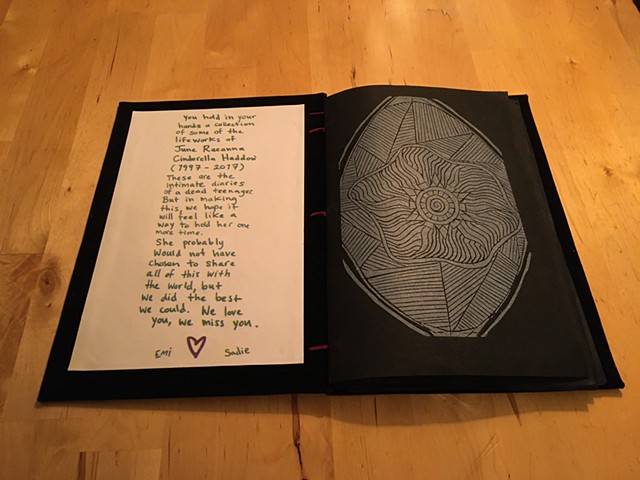 You hold in your
hands a collection
of some of the
lifeworks of
June Raeanna
Cinderella Haddow
(1997-2017)
These are the
intimate diaries
of a dead teenager
But in making
this, we hope it
will feel like a
way to hold her one
more time.
She probably
would not have
chosen to share
all of this with
the world, but
we did the best
we could. We love
you, we miss you.
Emi Sadie